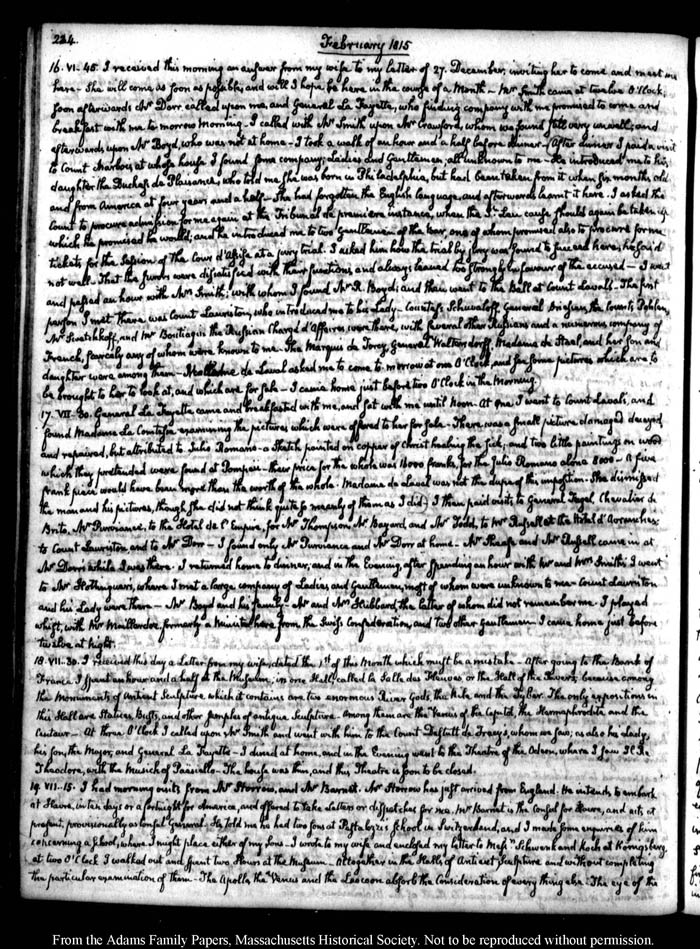 224.
February 1815
16. VI. 45. I received this morning an answer from my wife to my letter of 27. December, inviting her to come and meet me
here - She will come as soon as possible, and will I hope be here in the course of a Month - Mr Smith came at twelve O'Clock,
soon afterwards Mr Dorr called upon me, and General La Fayette, who finding company with me promised to come and
breakfast with me to-morrow morning - I called with Mr Smith upon Mr Crawford, whom we found still very unwell; and
afterwards upon Mr Boyd, who was not at home - I took a walk of an hour and a half before dinner - After dinner I paid a visit
to Count Marbois at whose house I found some company; Ladies and Gentlemen; all unknown to me - He introduced me to his
daughter the Duchess de Plaisance, who told me she was born in Philadelphia, but had been taken from it when six months old
and from America at four years and a half - She had forgotten the English language, and afterwards learnt it here. I asked the
Count to procure admission for me again at the Tribunal de premiere instance, when the St. Leu cause should again be taken up
which he promised he would; and he introduced me to two Gentlemen of the bar, one of whom promised also to procure for me
tickets for the Session of the Cour d'Assise at a jury trial. I asked him how the trial by jury was found to succeed here; he said
not well - That the jurors were dissatisfied with their functions, and always leaned too strongly in favour of the accused - I went
and passed an hour with Mrs Smith; with whom I found Mr R. Boyd; and then went to the Ball at Count Laval's. The first
person I met there was Count Lauriston, who introduced me to his Lady - Countess Schuwaloff, General
Mr Swatchkoff, and Mr Boutiagin the Russian Chargé d'Affaires were there, with several other Russians and a numerous company of
French, scarcely any of whom were known to me. The Marquis de Torcy, General Walterstorff, Madame de Stael, and her Son and
daughter were among them - Madame de Laval asked me to come to-morrow at one O'Clock, and see some pictures which are to
be brought to her to look at, and which are for sale - I came home just before two O'Clock in the Morning.
17. VII. 30. General La Fayette came and breakfasted with me, and sat with me until Noon - At one, I went to Count Laval's, and
found Madame La Comtesse examining the pictures which were offered to her for sale - There was a small picture damaged decayed
and repaired, but attributed to Julio Romano - a sketch painted on copper of Christ healing the sick, and two little paintings on wood
which they pretended were found at Pompeii - their price for the whole was 16000 franks, for the Julio Romano alone 8000 - A five
frank piece would have been more than the worth of the whole. Madame de Laval was not the dupe of the imposition. She dismissed
the man and his pictures, though she did not think quite so meanly of them as I did - I then paid visits to General Fagel, Chevalier de
Brito, Mr Purviance, to the Hotel de l'Empire, for Mr Thompson, Mr Bayard, and Mr Todd, to Mr Russell at the Hotel d'Avranches
to Count Lauriston and to Mr Dorr - I found only Mr Purviance and Mr Dorr at home - Mr Sheafe and Mr Russell came in at
Mr Dorr's while I was there - I returned home to dinner, and in the Evening, after spending an hour with Mr and Mrs Smith; I went
to Mr Hottinguer's, where I met a large company of Ladies and Gentlemen, most of whom were unknown to me - Count Lauriston
and his Lady were there - Mr Boyd and his family - Mr and Mrs Hibbard, the latter of whom did not remember me - I played
whist, with Mr Maillardoz, formerly a Minister here from the Swiss Confederation, and two other Gentlemen - I came home just before
twelve at night.
18. VII. 30. I received this day a Letter from my wife, dated the 1st of this Month which must be a mistake - After going to the Bank of
France I spent an hour and a half at the Museum; in one Hall, called la Salle des Fleuves or the Hall of the Rivers; because among
the Monuments of Ancient Sculpture which it contains are two enormous River Gods, the Nile and the Tyber. The only expositions in
this Hall are Statues, Busts, and other samples of antique Sculpture - Among them are the Venus of the Capitol, the Hermaphrodite and the
Centaur - At three O'Clock I called upon Mr Smith and went with him to the Count Destutt de Tracy's, whom we saw; as also his Lady,
his son, the Major, and General La Fayette - I dined at home, and in the Evening went to the Theatre of the Odeon, where I saw Il Re
Theodore, with the Musick of Paesiello - The house was thin, and this Theatre is soon to be closed.
19. VII. 15. I had morning visits from Mr Storrow, and Mr Barnet. Mr Storrow has just arrived from England. He intends to embark
at Havre, in ten days or a fortnight for America, and offered to take Letters or dispatches for me. Mr Barnet is the Consul for Havre, and acts at
present, provisionally as Consul General. He told me he had two sons at Pestalozzi's School in Switzerland, and I made some enquiries of him
concerning a School, where I might place either of my Sons - I wrote to my wife and enclosed my letter to Messrs Schwenk and Koch at Königsberg,
at two O'Clock I walked out and spent two Hours at the Museum - Altogether in the Halls of Antient Sculpture and without completing
the particular examination of them - The Apollo, the Venus and the Laocoon absorb the Consideration of every thing else - The eye of the
From the Adams Family Papers, Massachusetts Historical Society. Not to be reproduced without permission.